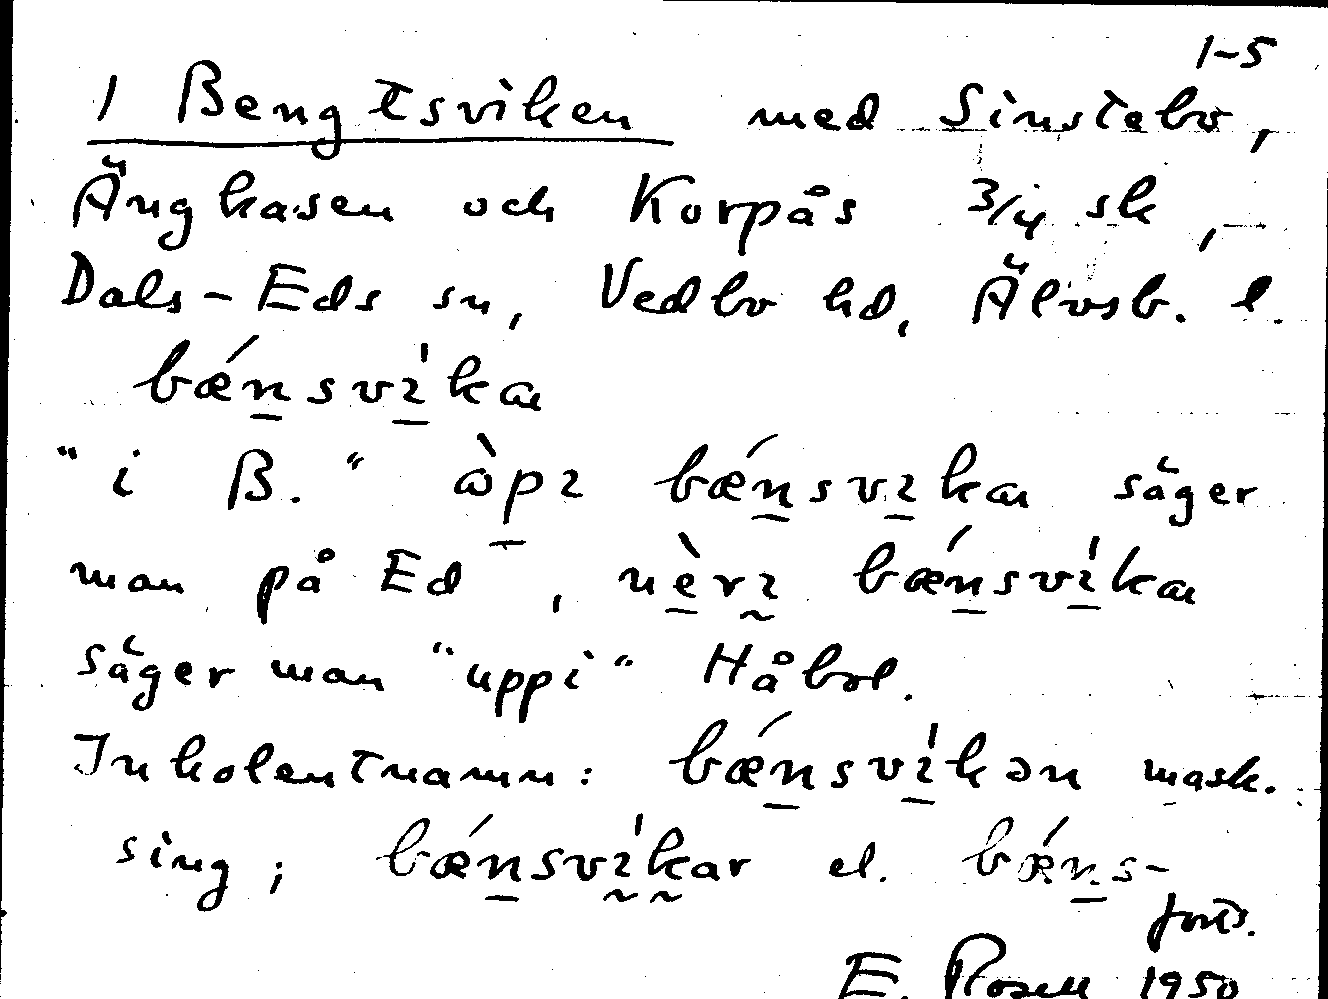 1-5
1 Bengtsviken med Sinstebo,
Ängkasen och Korpås 3/4 sk,
Dals-Eds sn, Vedbo hd, Älvsb. l.
bǽn̲svı̲̍ka
"i B." ὼp̲ı bǽn̲svı̲ka säger
man på Ed, nè̲rı̰ bǽn̲svı̲̍ka
säger man "uppi" Håbol.
Inkolentnamn: bǽn̲svı̲̍kən mask.
sing; bǽn̲svı̰̍k̰ar el. bǽn̲s-
forts.
E. Rosell 1950